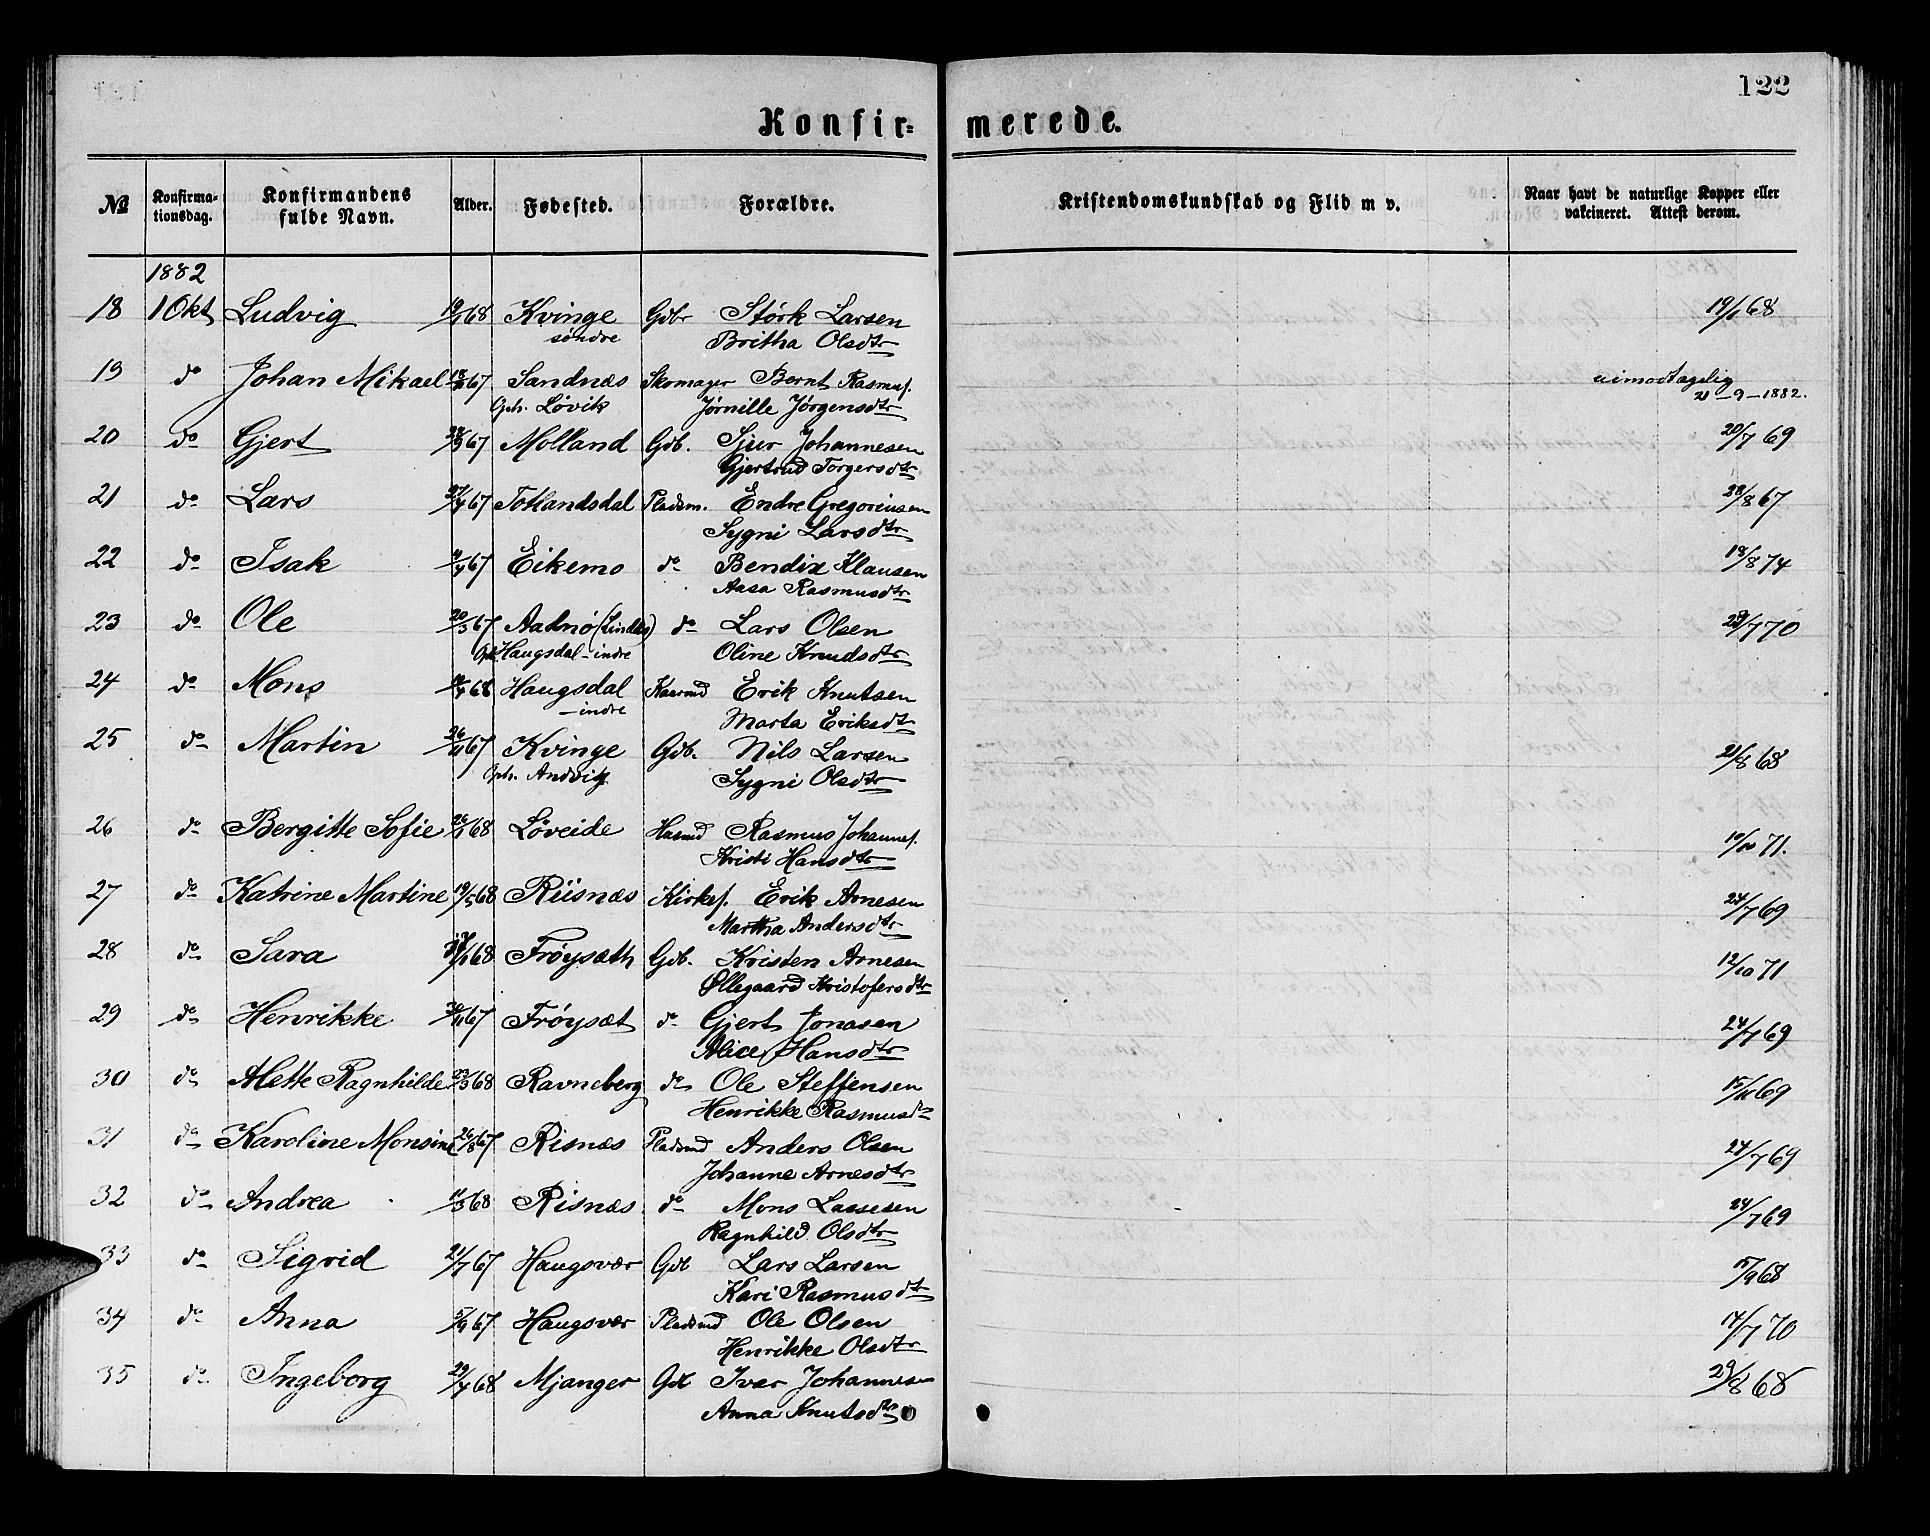 122
Konfir= merede.
№ Konfirma-tionsdag. Konfirmandens fulde Navn. Alder. Fødested. Forældre. Kristendomskundskab og Flid m v. Naar havt de naturlige Kopper eller vakcineret. Attest derom.
1882
18 1 Okt Ludvig 68 Kvinge Gdbr Størk Larsen 68
søndre Britha Olsdtr
19 do Johan Mikael 67 Sandnæs Skomager Bernt Rasmus. uimodtagelig
Oph. Løvik Jørnille Jørgensdtr 21-9-1882.
20 do Gjert 67 Molland Gdb. Sjur Johannesen 20/7 69
Gjertrud Torgersdtr
21 do Lars 67 Totlandsdal Pladsm. Endre Gregoriusen 28/8 67
Sygni Larsdtr
22 do Isak 67 Eikemo do Bendix Klausen 18/8 74
Aasa Rasmusdtr
23 do Ole 20/3 67 (Lindås) do Lars Olsen /7 70
Oph Haugsdal-indre Oline Knudsdtr
24 do Mons 68 Haugsdal Erik Knutsen
-indre Marta Eriksdtr
25 do Martin 26/11 67 Kvinge Gdb. Nils Larsen 21/8 68
Oph. Andvik Sygni Olsdtr
26 do Bergitte Sofie 68 Løveide Husmd Rasmus Johannes. 10/10 71.
Kristi Hansdtr
27 do Katrine Martine 19/5 68 Riisnæs Kirkes. Erik Arnesen 24/7 69
Martha Andersdtr
28 do Sara 68 Frøysæth Gdb. Kristen Arnesen 12/10 71
Øllegaard Kristofersdtr
29 do Henrikke 67 Frøysæt do Gjert Jonasen 24/7 69
Alice Hansdtr
30 do Alette Ragnhilde 23/3 68 Ravneberg do Ole Steffensen 69
Henrikke Rasmusdtr
31 do Karoline Monsine 26/8 67 Risnæs Pladsmd Anders Olsen 24/7 69
Johanne Arnesdtr
32 do Andrea 68 Risnæs do Mons Lassesen 24/7 69
Ragnhild Olsdtr
33 do Sigrid 21/7 67 Haugsvær Gdb Lars Larsen 15/9 68
Kari Rasmusdtr
34 do Anna 5/9 67 Haugsvær Pladsmd Ole Olsen /7 70
Henrikke Olsdtr
35 do Ingeborg 29/4 68 Mjanger Gdb Ivar Johannesen 29/8 68
Anna Knutsdtr